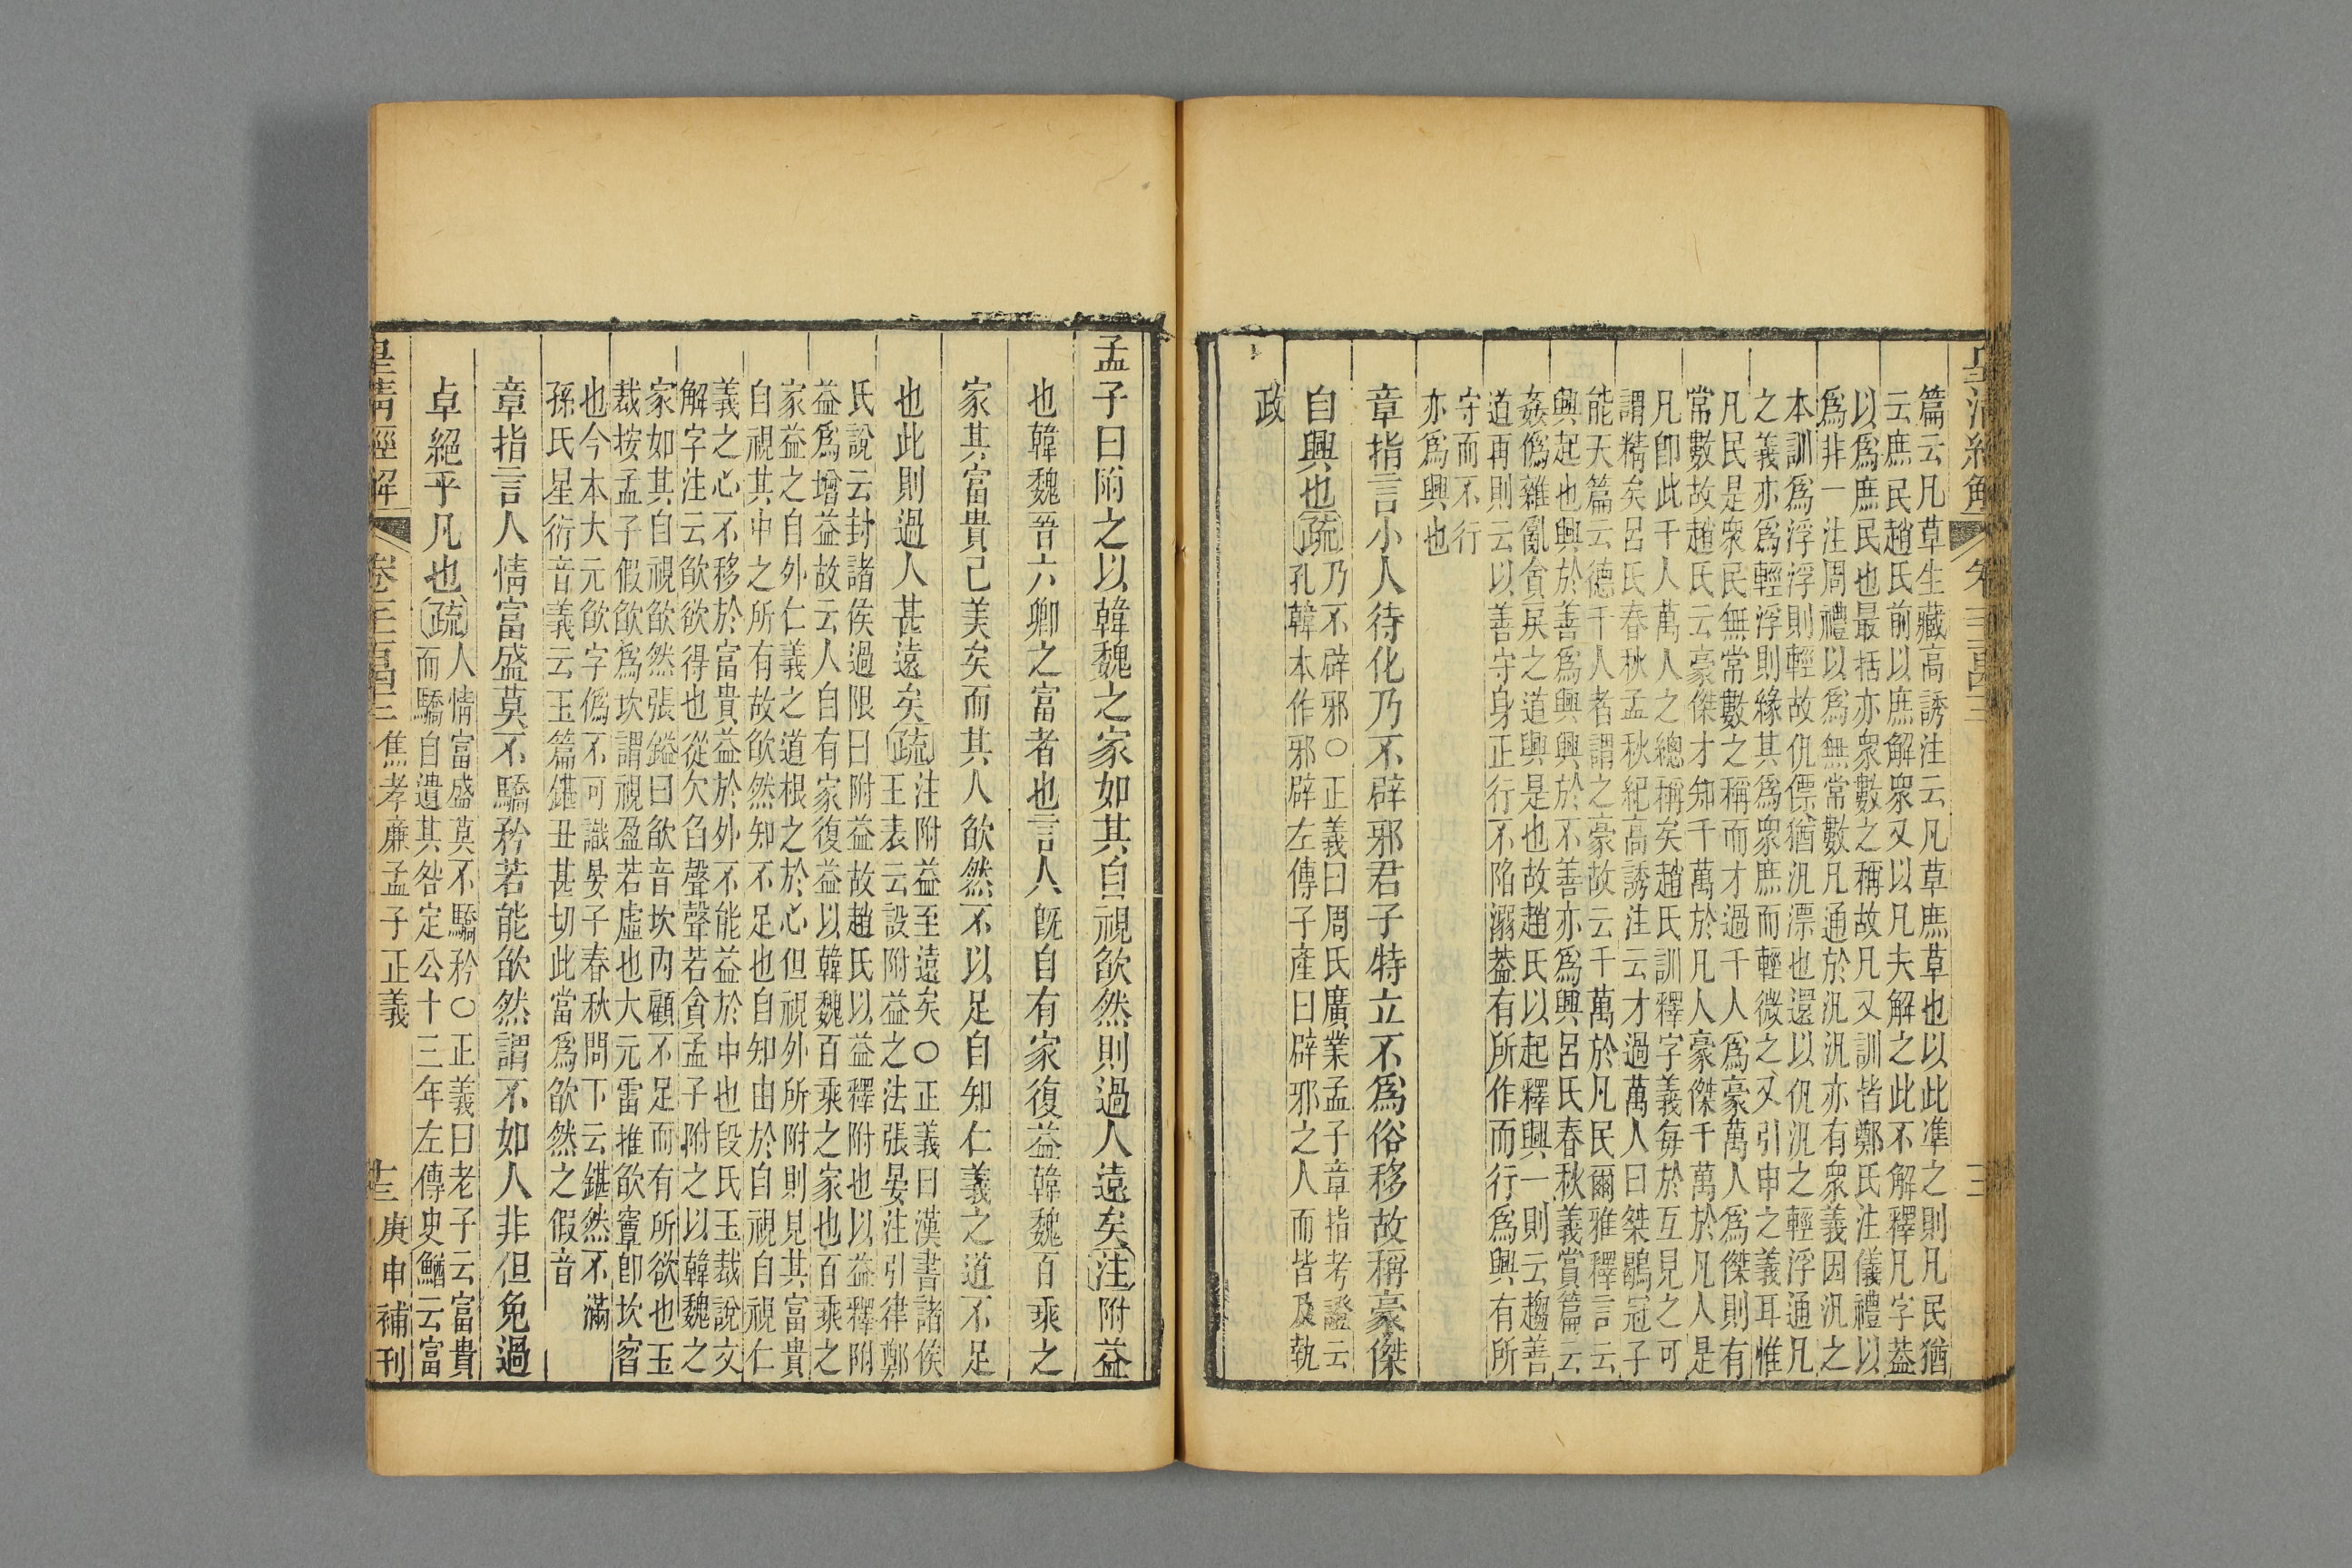 皇清經解
卷
篇云凡草生藏高誘注云凡草庶草也以此準之則凡民猶
云庶民趙氏前以庶解衆又以凡夫解之此不解釋凡字葢
以爲庶民也最括亦衆數之稱故凡又訓皆鄭氏注儀禮以
爲非一注周禮以爲無常數凡通於汎汎亦有衆義因汎之
本訓爲浮浮則輕故仉僄猶汎漂也還以仉汎之輕浮通凡
之義亦爲輕浮則緣其爲衆庶而輕微之又引申之義耳惟
凡民是衆民無常數之稱而才過千人爲豪萬人爲傑則有
常數故趙氏云豪傑才知千萬於凡人豪傑千萬於凡人是
凡卽此千人萬人之總稱矣趙氏訓釋字義每於互見之可
謂精矣呂氏春秋孟秋紀高誘注云才過萬人曰桀鶡冠子
能天篇云德千人者謂之豪故云千萬於凡民爾雅釋言云
興起也興於善爲興興於不善亦爲興呂氏春秋義賞篇云
姦僞雜亂貪戾之道興是也故趙氏以起釋興一則云趨善
道再則云以善守身正行不陷溺葢有所作而行爲興有所
守而不行
亦爲興也
章指言小人待化乃不辟邪君子特立不爲俗移故稱豪傑
自興也疏乃不辟邪○正義曰周氏廣業孟子章指考證云
孔韓本作邪辟左傳子產曰辟邪之人而皆及執
政
孟子曰附之以韓魏之家如其自視欿然則過人遠矣注附益
也韓魏晉六卿之富者也言人旣自有家復益韓魏百乘之
家其富貴己美矣而其人欿然不以足自知仁義之道不足
也此則過人甚遠矣疏注附益至遠矣○正義曰漢書諸侯
王表云設附益之法張晏注引律鄭
氏說云封諸侯過限曰附益故趙氏以益釋附也以益釋附
益爲增益故云人自有家復益以韓魏百乘之家也百乘之
家益之自外仁義之道根之於心但視外所附則見其富貴
自視其中之所有故欿然知不足也自知由於自視自視仁
義之心不移於富貴益於外不能益於中也段氏玉裁說文
解字注云欿欲得也從欠臽聲聲若貪孟子附之以韓魏之
家如其自視欿然張鎰曰欿音坎內顧不足而有所欲也玉
裁按孟子假欿爲坎謂視盈若虛也大元雷推欿窞卽坎窞
也今本大元欿字僞不可識晏子春秋問下云歁然不滿
孫氏星衍音義云玉篇歁丑甚切此當爲欿然之假音
章指言人情富盛莫不驕矜若能欿然謂不如人非但免過
卓絕乎凡也疏人情富盛莫不驕矜○正義曰老子云富貴
而驕自遺其咎定公十三年左傳史鰌云富
皇清經解
卷 焦孝廉孟子正義
庚申補刊